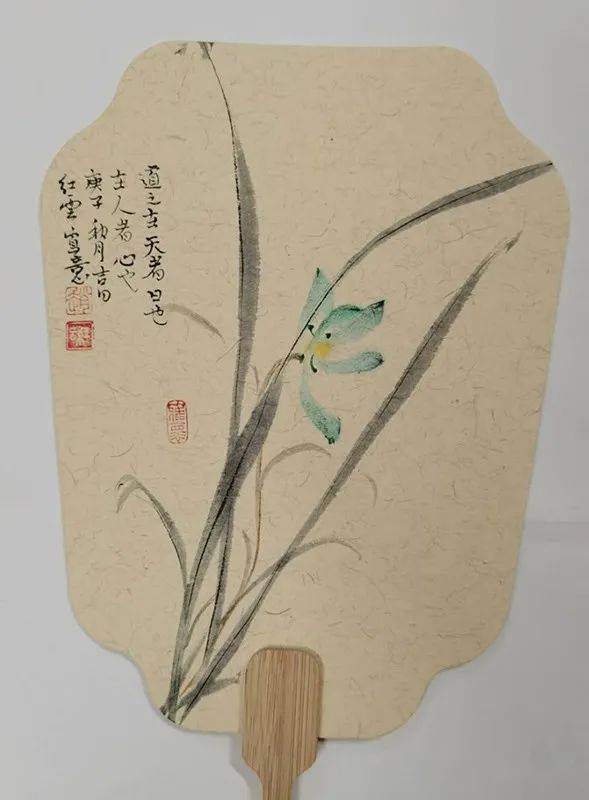 道之在天者日也
在人者心也
庚子秋月吉日
红雲寫意